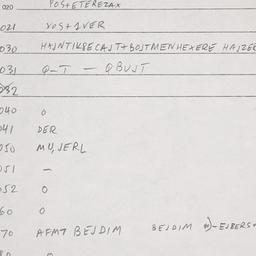 020 POS+ETEREZAX
021 VOS+1VER
030 H+JNTIKBECAJT+BOJTMENHEXERE HAJZER
031 Q-T — QBUJT
032
040 0
041 DER
050 MU,JERL
051 —
052 0
60 0
70 AFMT BEJDIM BEJDIM